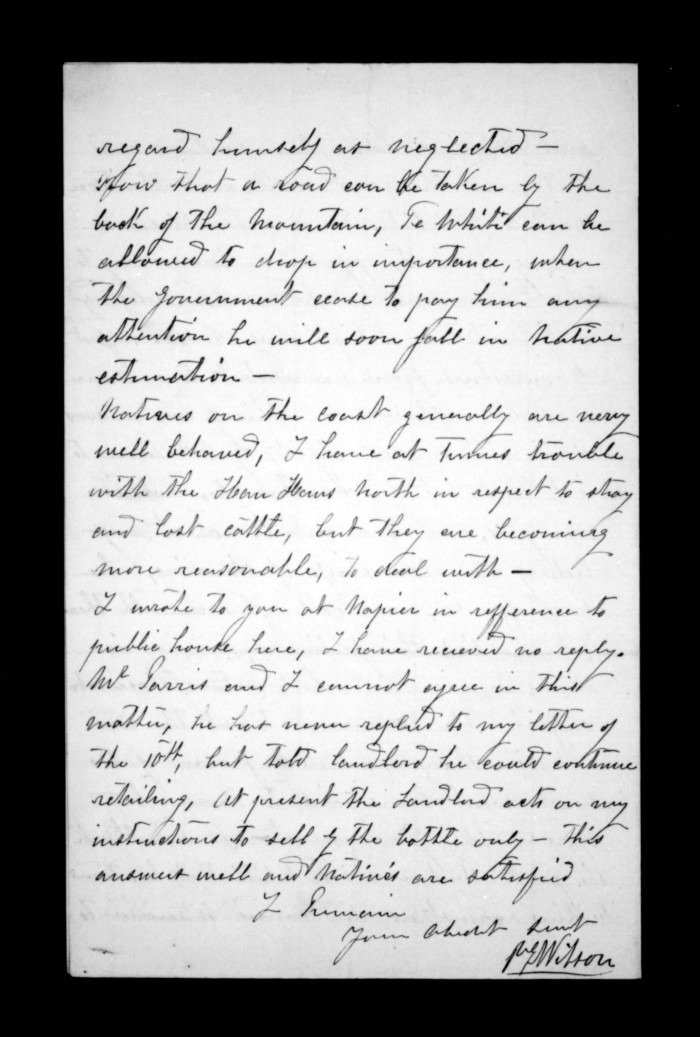 regard himself as neglected —
Now that a road can be taken by the
back of the Mountain, Te Whiti can be
allowed to drop in importance, when
the Government cease to pay him any
attention he will soon fall in Native
estimation —
Natives on the coast generally are very
well behaved, I have at times trouble
with the Hau Haus North in respect to stray
and lost cattle, but they are becoming
more reasonable, to deal with —
I wrote to you at Napier in refference to
public house here, I have recieved no reply.
Mr Parris and I cannot agree in this
matter, he has never replied to my letter of
the 10th, but told landlord he could continue
retailing, At present the Landlord acts on my
instructions to sell by the bottle only — this
answers well and Natives are satisfied
I remain
Your obedt Servt
Wilson